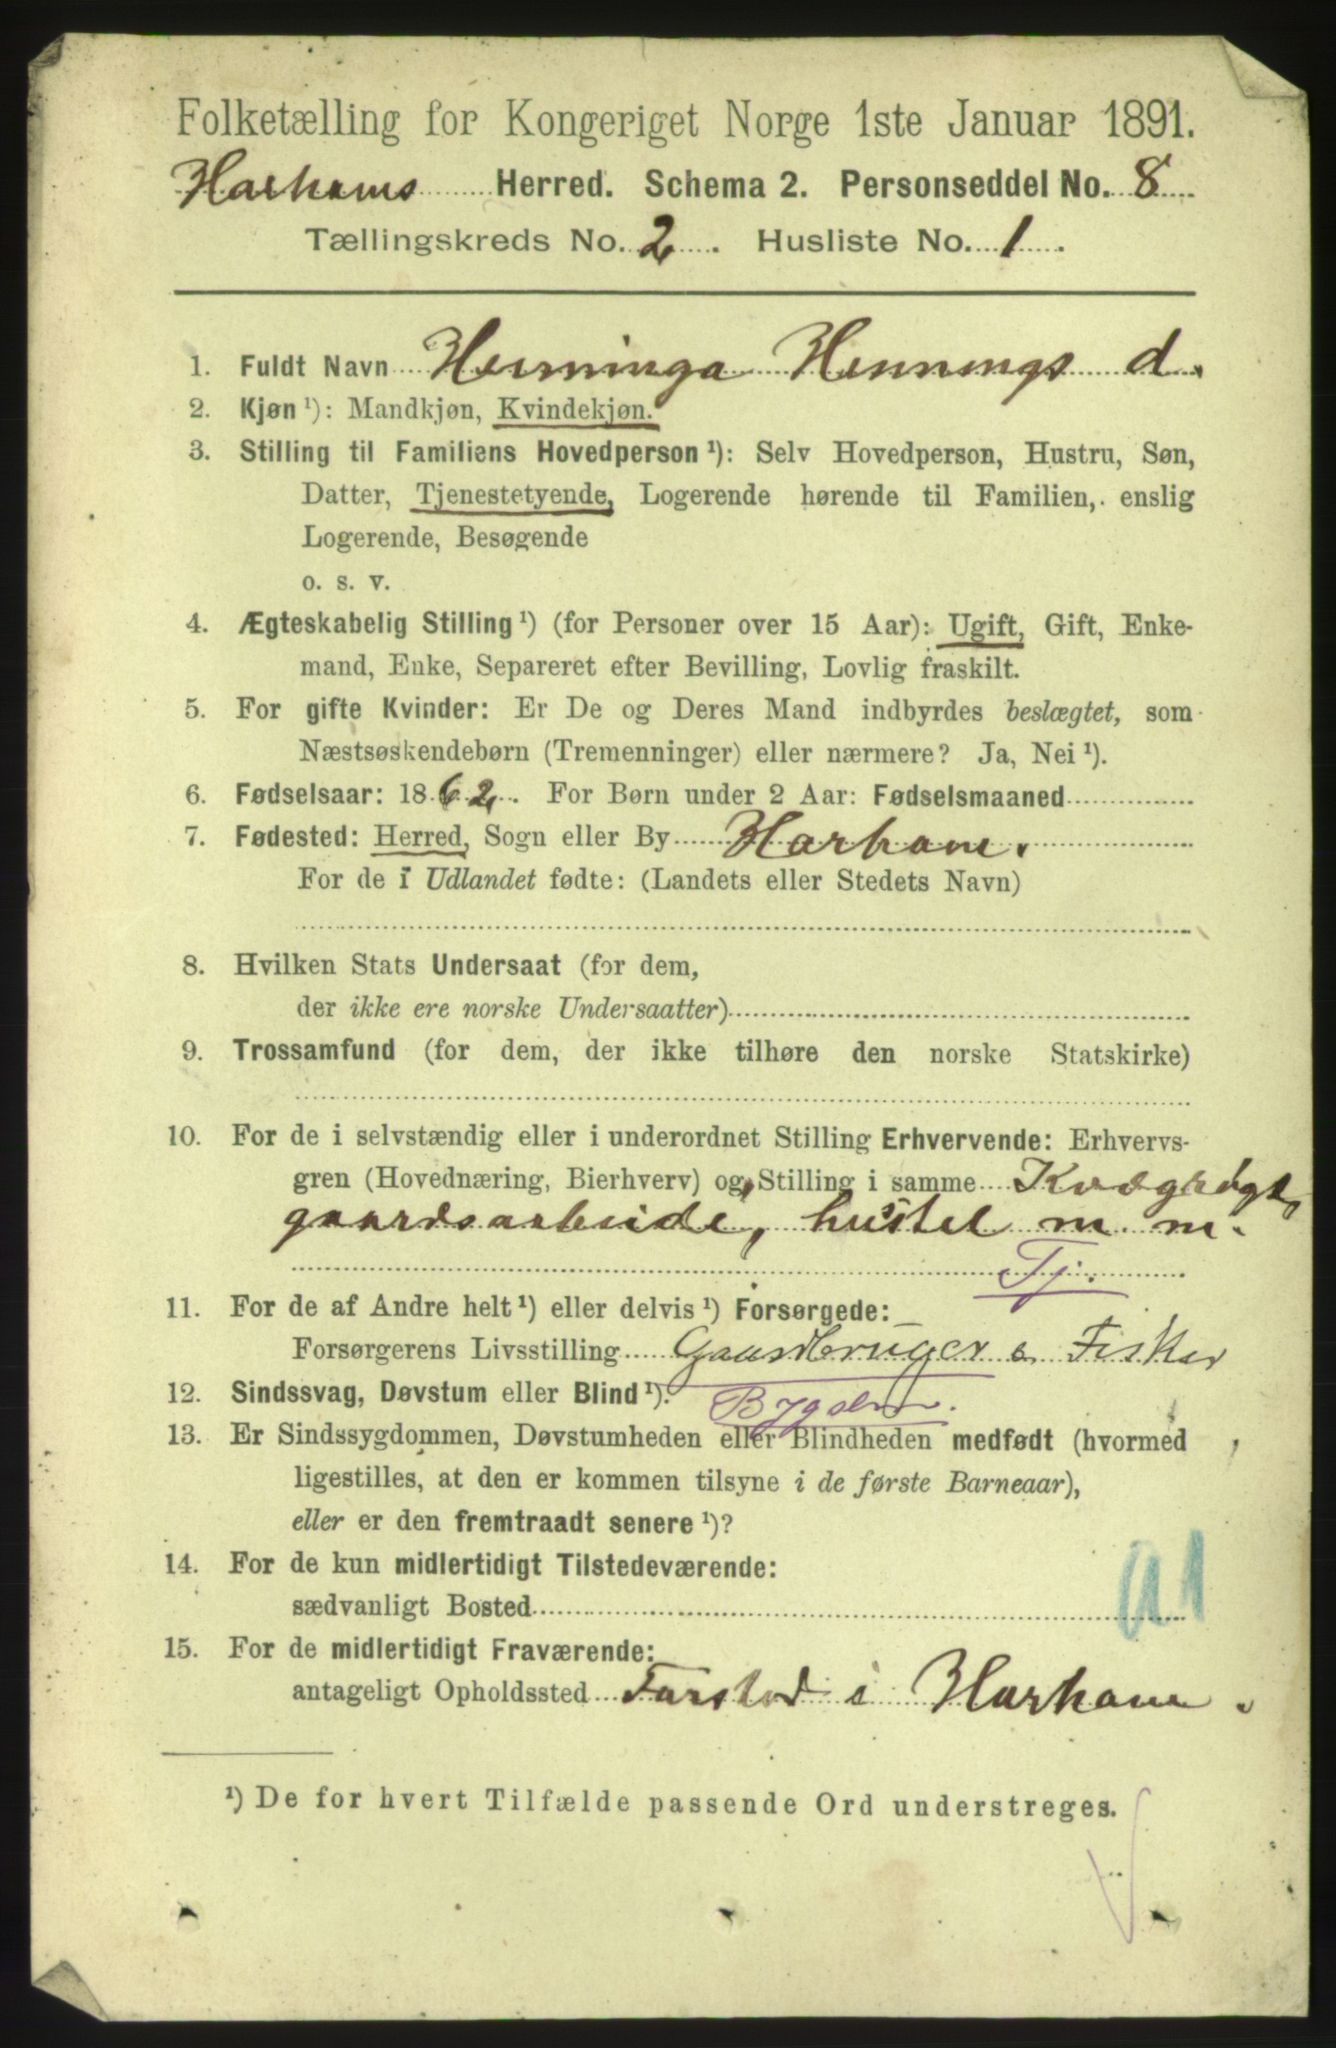 Folketælling for Kongeriget Norge 1ste Januar 1891.
Harhams Herred. Schema 2. Personseddel No. 8
Tællingskreds No. 2. Husliste No. 1.
1. Fuldt Navn Henninga Hennings d.
2. Kjøn ¹): Mandkjøn, Kvindekjøn.
3. Stilling til Familiens Hovedperson ¹): Selv Hovedperson, Hustru, Søn,
Datter, Tjenestetyende, Logerende hørende til Familien, enslig
Logerende, Besøgende
o. s. v.
4. Ægteskabelig Stilling ¹) (for Personer over 15 Aar): Ugift, Gift, Enke-
mand, Enke, Separeret efter Bevilling, Lovlig fraskilt.
5. For gifte Kvinder: Er De og Deres Mand indbyrdes beslægtet, som
Næstsøskendebørn (Tremenninger) eller nærmere? Ja, Nei ¹).
6. Fødselsaar: 1862. For Børn under 2 Aar: Fødselsmaaned
7. Fødested: Herred, Sogn eller By Harham.
For de i Udlandet fødte: (Landets eller Stedets Navn)
8. Hvilken Stats Undersaat (for dem,
der ikke ere norske Undersaatter)
9. Trossamfund (for dem, der ikke tilhøre den norske Statskirke)
10. For de i selvstændig eller i underordnet Stilling Erhvervende: Erhvervs-
gren (Hovednæring, Bierhverv) og Stilling i samme Kvægrøgt,
gaardsarbeide, husstel m. m.
Tj.
11. For de af Andre helt ¹) eller delvis ¹) Forsørgede:
Forsørgerens Livsstilling Gaardbruger o Fisker
12. Sindssvag, Døvstum eller Blind ¹).
Bygselm.
13. Er Sindssygdommen, Døvstumheden eller Blindheden medfødt (hvormed
ligestilles, at den er kommen tilsyne i de første Barneaar),
eller er den fremtraadt senere ¹)?
14. For de kun midlertidigt Tilstedeværende:
sædvanligt Bosted
a1
15. For de midlertidigt Fraværende:
antageligt Opholdssted Farstad i Harham.
¹) De for hvert Tilfælde passende Ord understreges.